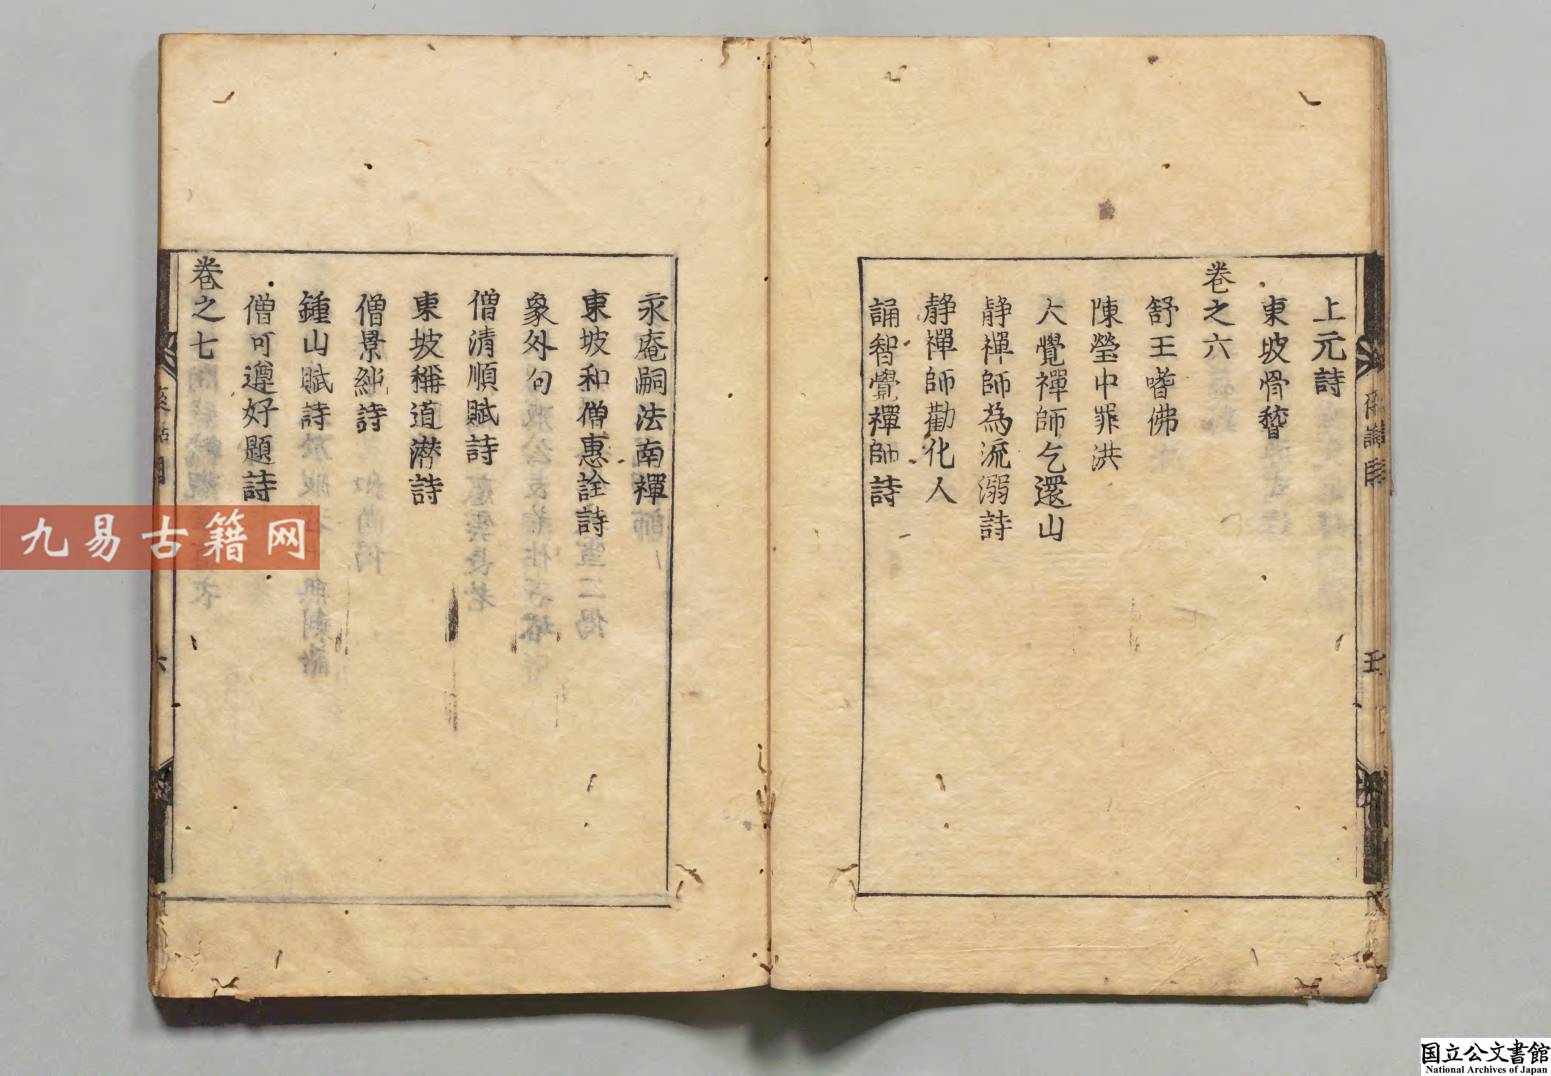 上元詩
東坡滑稽
卷之六
舒王嗜佛
陳瑩中罪洪
大覺禪師乞還山
静禪師為流溺詩
静禪師勸化人
誦智覺禪師詩
永庵嗣法南禪師
東坡和僧惠詮詩
象外句
僧清順賦詩
東坡稱道潜詩
僧景純詩
鍾山賦詩
僧可遵好題詩
卷之七
六
九易古籍网
国立公文書館
National Archives of Japan